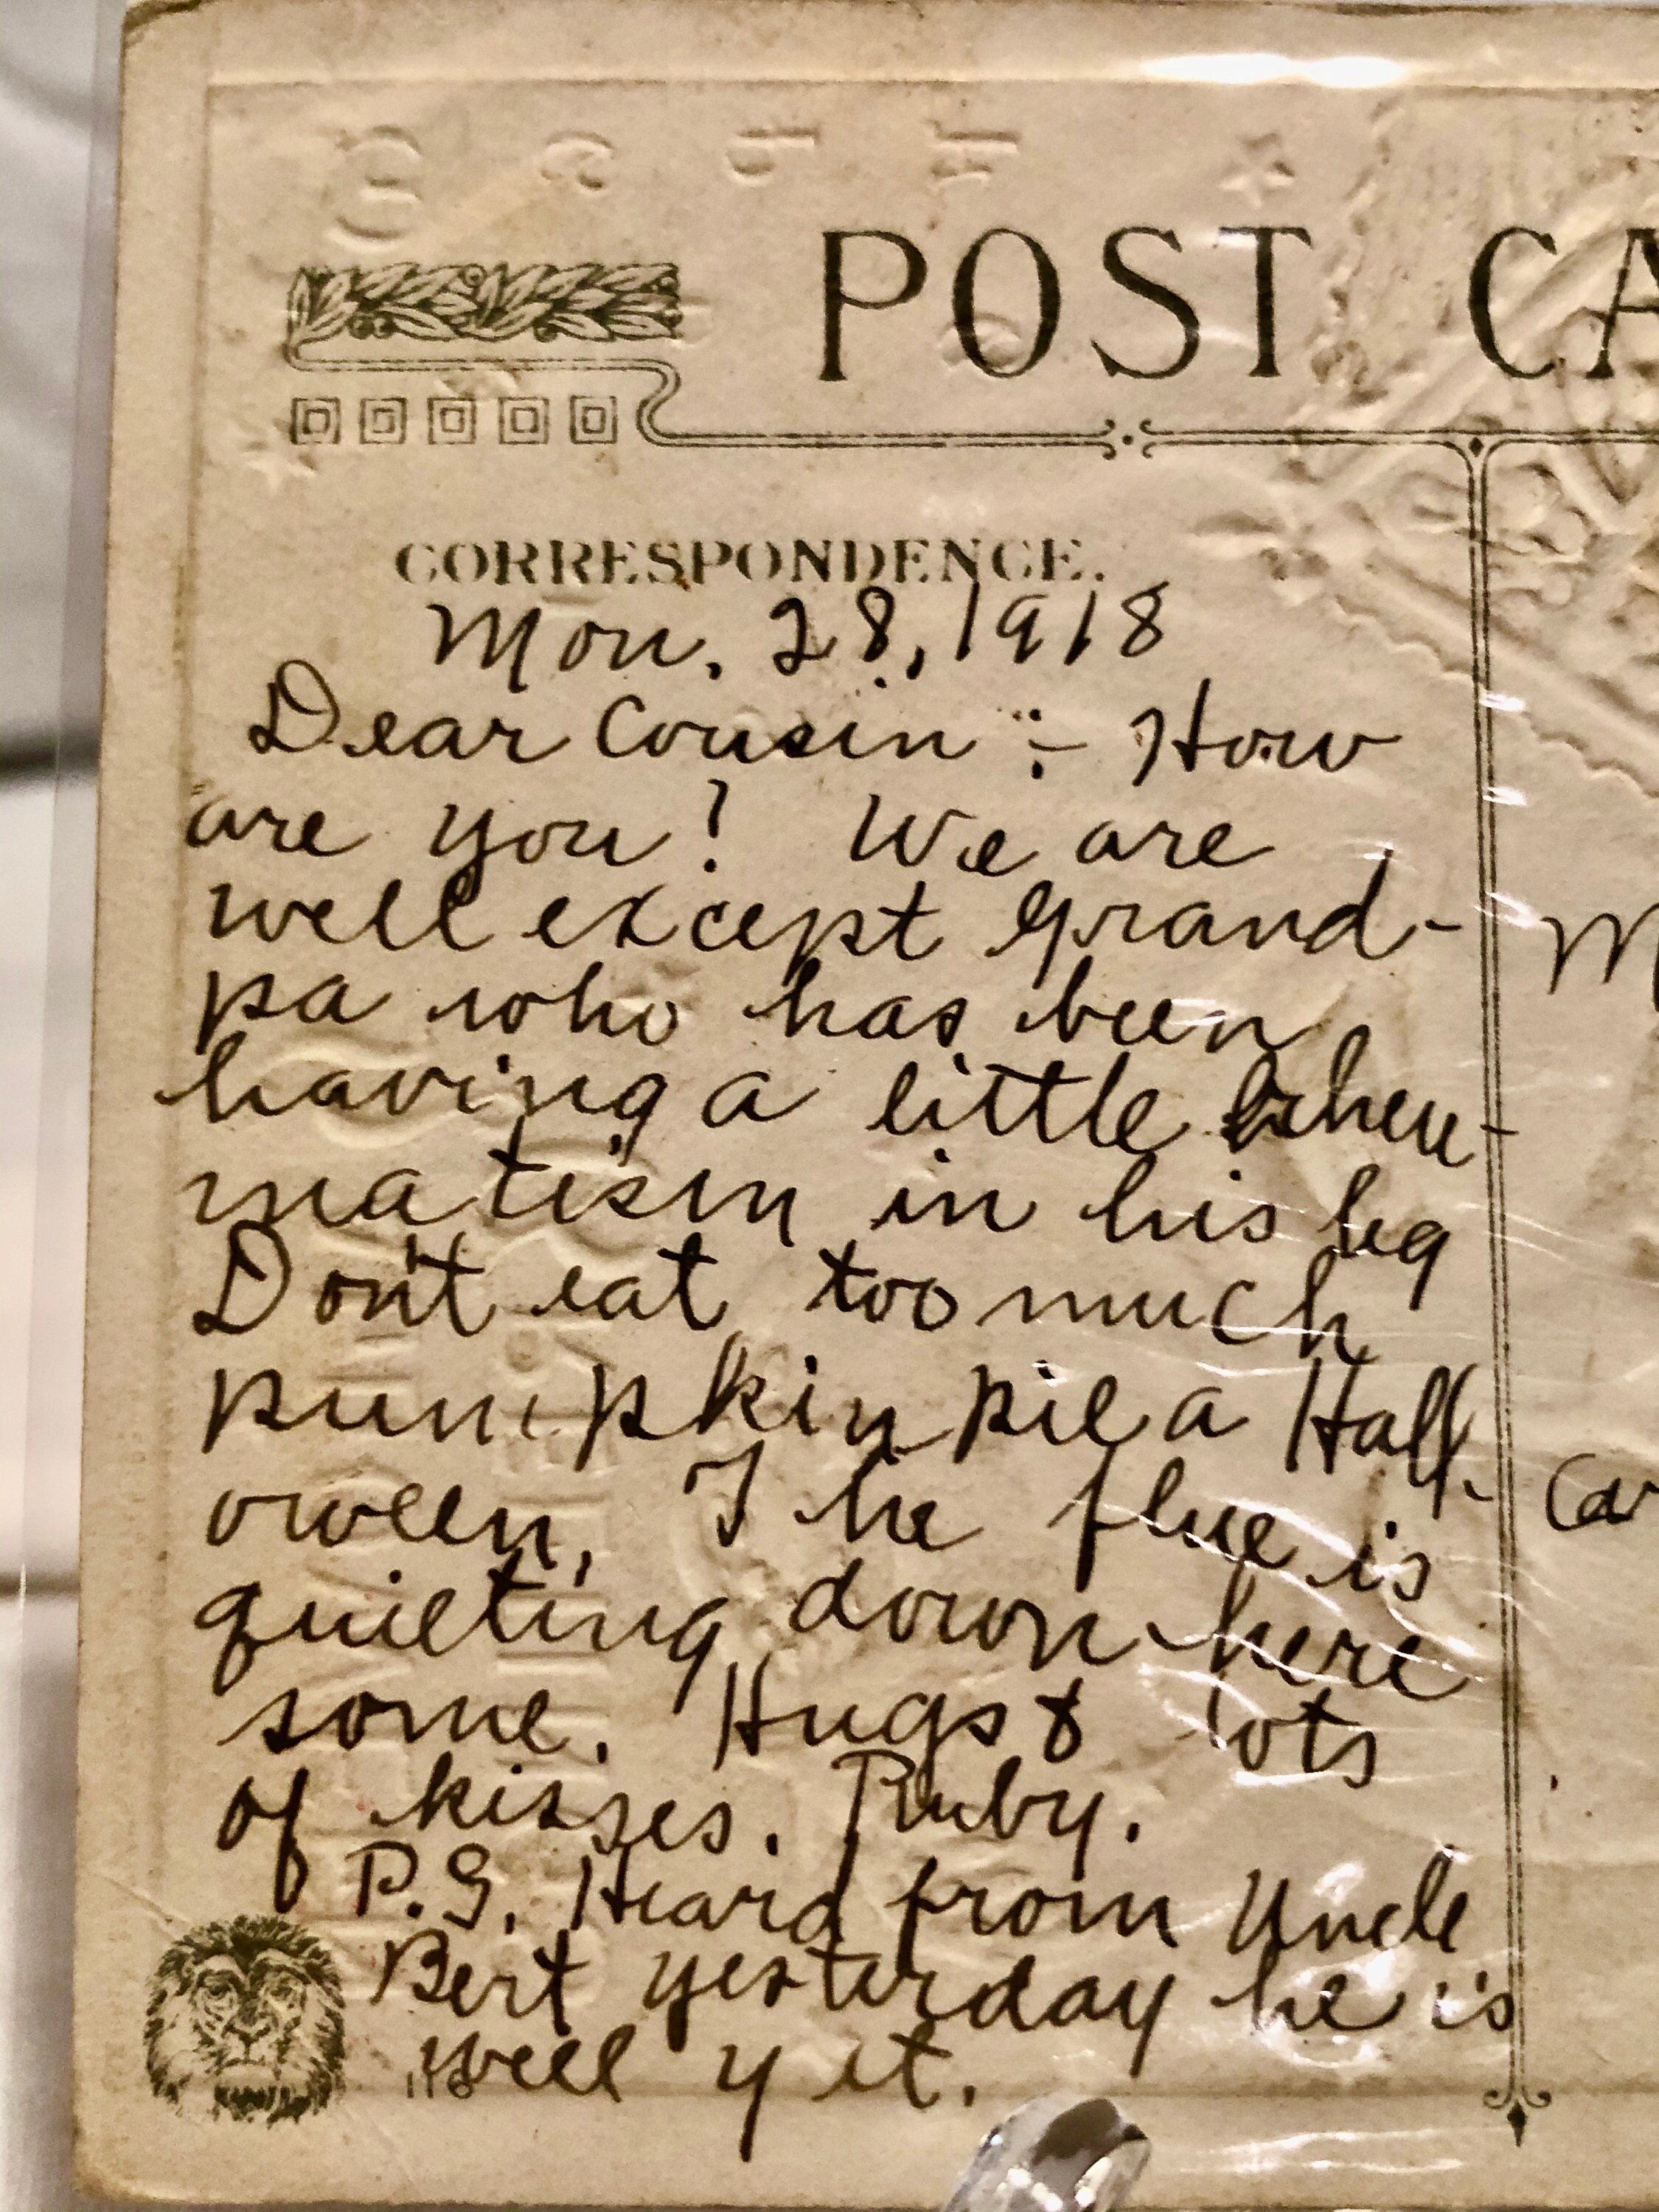 POST CA
CORRESPONDENCE.
Mon. 28, 1918
Dear Cousin :- How
are you? We are
well except Grand-
pa who has been
having a little rheu-
matism in his leg
Don't eat too much
pumpkin pie a Hall-
oween, The flue is
quieting down here
some. Hugs & lots
of kisses. Ruby.
P.S. Heard from Uncle
Bert yesterday he is
well yet.
M
Car